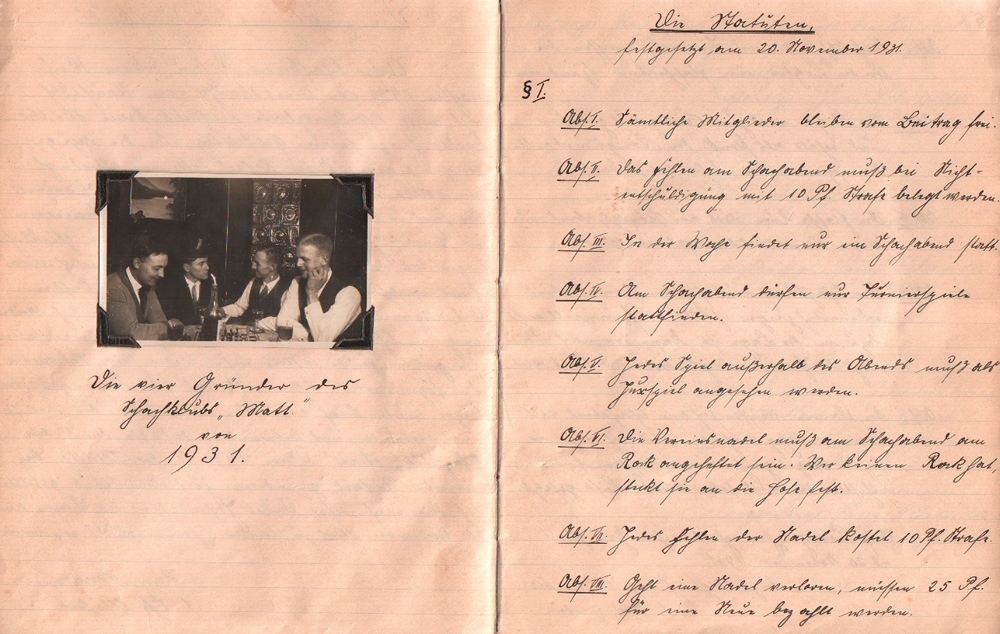 Die vier Gründer des
Schachklubs „Matt"
von
1931.
Die Statuten,
festgesetzt am 20. November 1931.
§ I.
Abs. I. Sämtliche Mitglieder bleiben vom Beitrag frei.
Abs. II. Das Fehlen am Schachabend muß bei Nicht-
entschuldigung mit 10 Pf. Strafe belegt werden.
Abs. III. In der Woche findet nur ein Schachabend statt.
Abs. IV. Am Schachabend dürfen nur Turnierspiele
stattfinden.
Abs. V. Jedes Spiel außerhalb des Abends muß als
Juxspiel angesehen werden.
Abs. VI. Die Vereinsnadel muß am Schachabend am
Rock angeheftet sein. Wer keinen Rock hat,
steckt sie an die Hose fest.
Abs. VII. Jedes Fehlen der Nadel kostet 10 Pf. Strafe.
Abs. VIII. Geht eine Nadel verloren, müssen 25 Pf.
für eine Neue bezahlt werden.